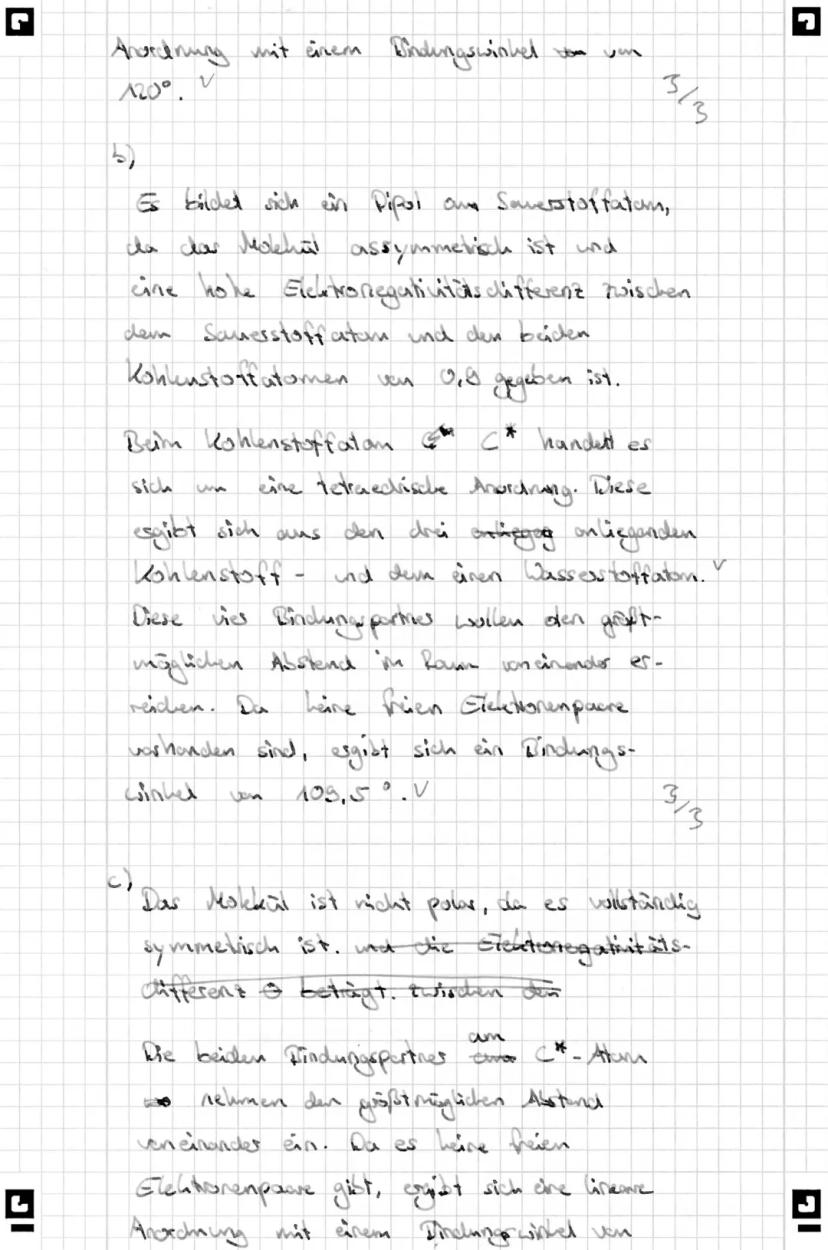 Anordnung mit einem Bindungswinkel von
120°. V
3/3
b)
Es bildet sich ein Dipol am Sauerstoffatom,
da das Molekül assymmetrisch ist und
eine hohe Elektronegativitätsdifferenz zwischen
dem Sauerstoffatom und den beiden
Kohlenstoffatomen von 0,9 gegeben ist.
Beim Kohlenstoffatom C* handelt es
sich um eine tetraedrische Anordnung. Diese
ergibt sich aus den drei anliegenden
Kohlenstoff- und dem einen Wasserstoffatom. V
Diese vier Bindungspartner wollen den größt-
möglichen Abstand im Raum voneinander er-
reichen. Da keine freien Elektronenpaare
vorhanden sind, ergibt sich ein Bindungs-
winkel von 109,5°. V
3/3
c) Das Molekül ist nicht polar, da es vollständig
symmetrisch ist. und die Elektronegativitäts-
differenz 0 beträgt. zwischen den
Die beiden Bindungspartner am C*-Atom
nehmen den größtmöglichen Abstand
voneinander ein. Da es keine freien
Elektronenpaare gibt, ergibt sich eine lineare
Anordnung mit einem Bindungswinkel von